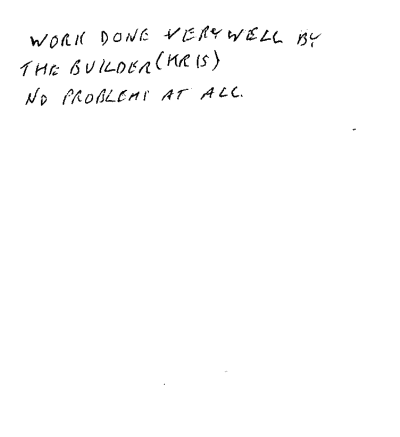 WORK DONE VERY WELL BY
THE BUILDER (KRIS)
NO PROBLEMS AT ALL.